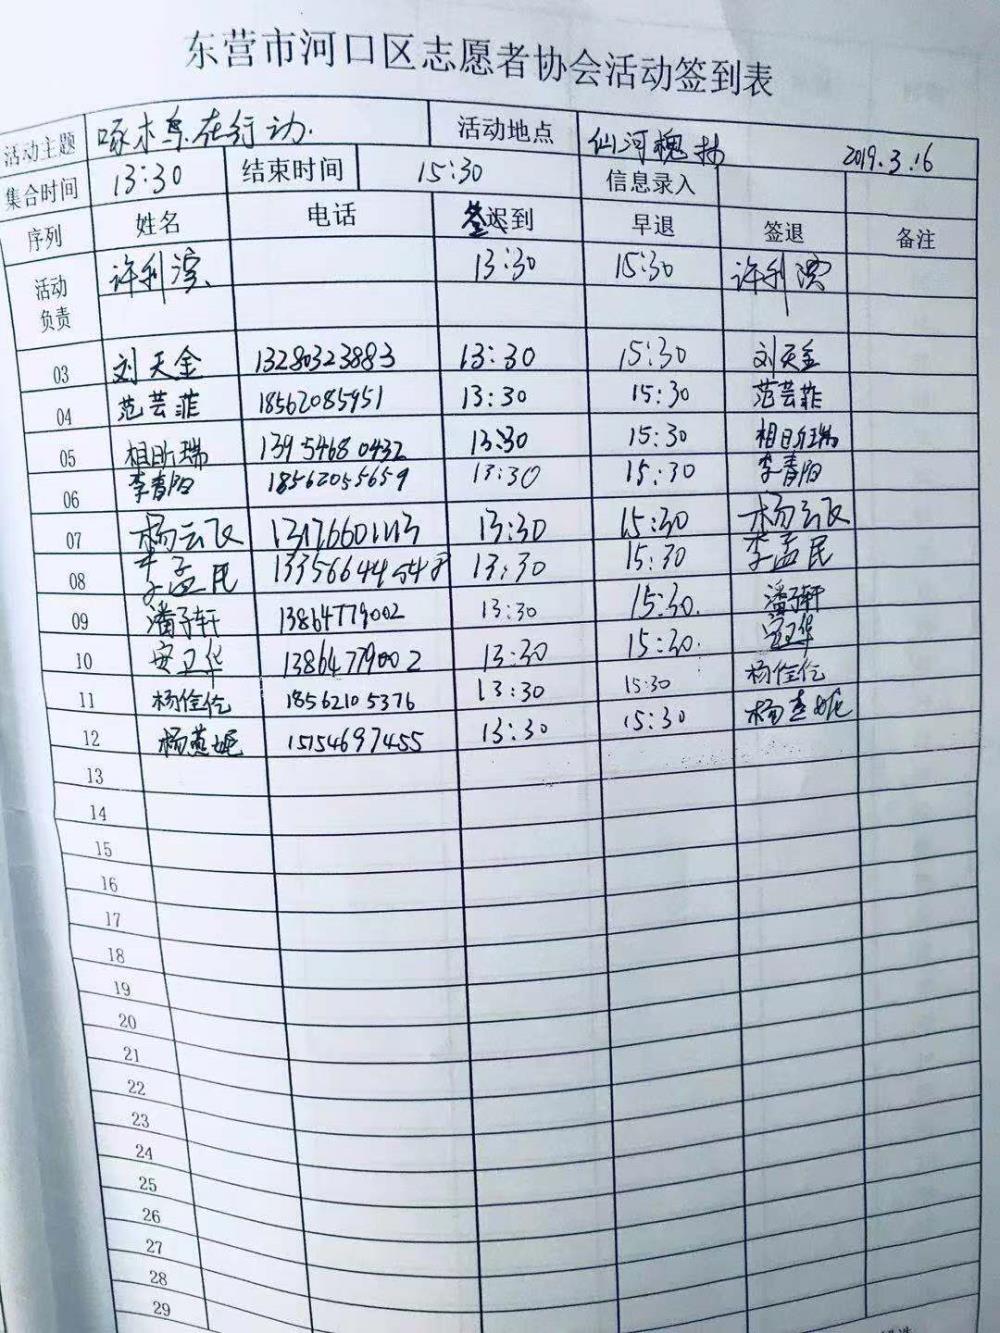 东营市河口区志愿者协会活动签到表
活动主题 啄木鸟在行动. 活动地点 仙河槐林 2019.3.16
集合时间 13:30 结束时间 15:30 信息录入
序列 姓名 电话 签迟到 早退 签退 备注
活动负责 许利滨 13:30 15:30 许利滨
03 刘天金 13280323883 13:30 15:30 刘天金
04 范芸菲 18562085951 13:30 15:30 范芸菲
05 相昕瑞 13954680432 13:30 15:30 相昕瑞
06 李青阳 18562055659 13:30 15:30 李青阳
07 杨云飞 13:30 15:30 杨云飞
08 李孟民 13:30 15:30 李孟民
09 潘子轩 13864779002 13:30 15:30. 潘子轩
10 安卫华 13864779002 13:30 15:30. 安卫华
11 杨佳仡 18562105376 13:30 15:30 杨佳仡
12 杨燕妮 15154697455 13:30 15:30 杨燕妮
13
14
15
16
17
18
19
20
21
22
23
24
25
26
27
28
29